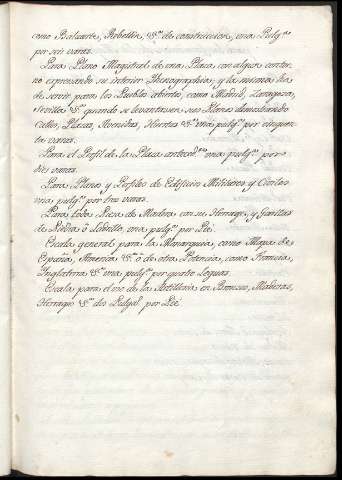 como Baluarte, Rebellin, &ª de construccion, una Pulgª
por seis varas.
Para Plano Magistral de una Plaza, con algun contor-
no expresando su interior Ichnographia; y la misma ha
de servir para los Pueblos abiertos, como Madrid, Zaragoza,
Sevilla &ª quando se levantasen sus Planos demostrando
Calles, Plazas, Avenidas, Huertas &ª una pulgª por cinquen-
ta varas.
Para el Perfil de la Plaza antecedte una pulgª por
diez varas.
Para Planos y Perfiles de Edificios Militares y Civiles
una pulgª por tres varas.
Para toda Pieza de Madera con su Herrage, y Garitas
de Piedra ó Ladrillo, una pulgª por Pié.
Escala general para la Monarquia, como Mapa de
España, America &ª ó de otra Potencia, como Francia,
Inglaterra &ª una pulgª por quatro leguas.
Escala para el uso de la Artilleria en Bronces, Maderas,
Herrages &ª dos Pulgs por Pié